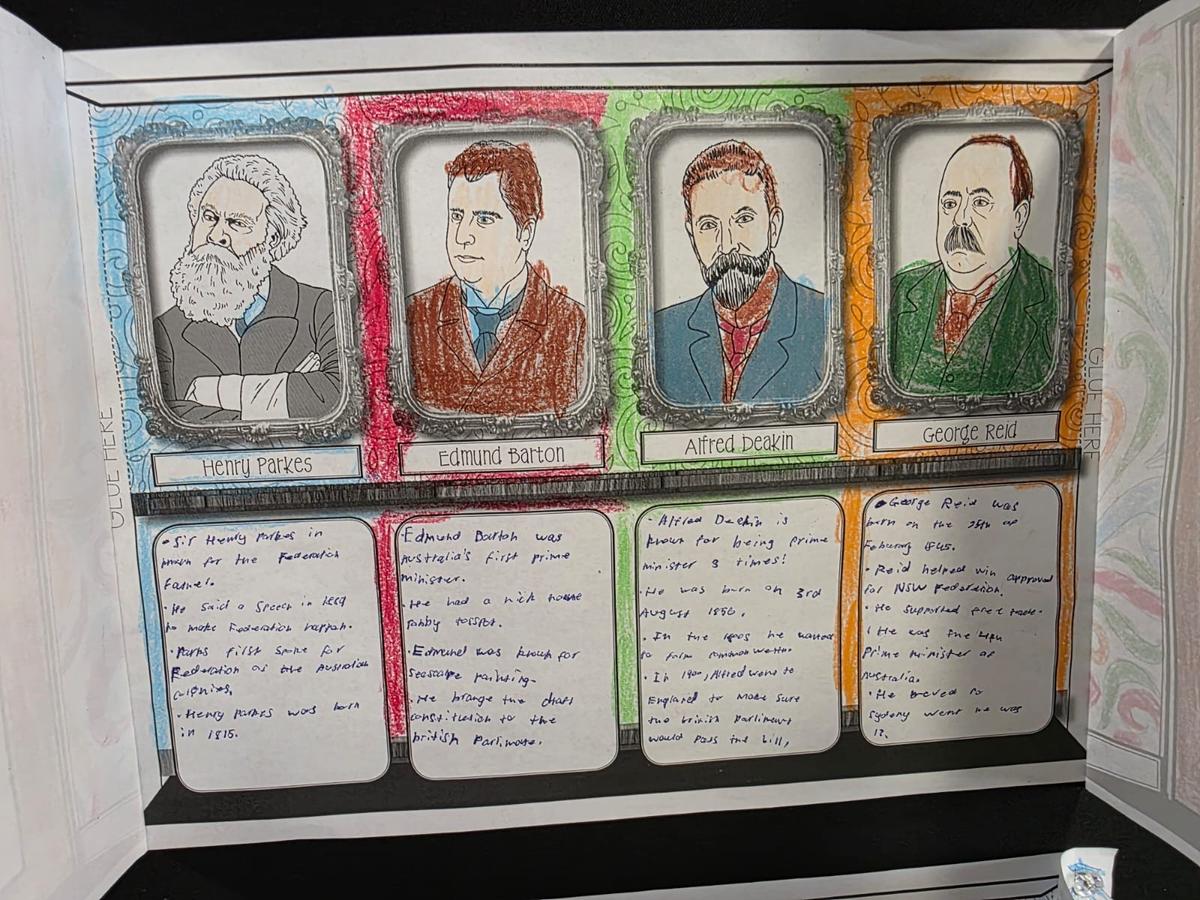 GLUE HERE
GLUE HERE
Henry Parkes
Edmund Barton
Alfred Deakin
George Reid
• Sir Henry Parkes in
known for the Federation
Father.
• He said a Speech in 1889
to make Federation happen.
• Parks first spoke for
Federation of the Australian
colonies.
• Henry Parkes was born
in 1815.
• Edmund Barton was
Australia's first prime
minister.
• He had a nick name
tosspot.
• Edmund was known for
seascape painting.
• He the draft
constitution to the
british Parlimate.
• Alfred Deakin is
known for being prime
minister 3 times!
• He was born on 3rd
August 1856.
• In the he wanted
to form
• In 1900, Alfred went to
England to make sure
the british Parliment
would pass the bill,
• George Reid was
born on the 25th of
1845.
• Reid helped win approval
for NSW Federation.
• He supported free trade.
• He was the 4th
Prime minister of
Australia.
• He moved to
Sydney went he was
12.